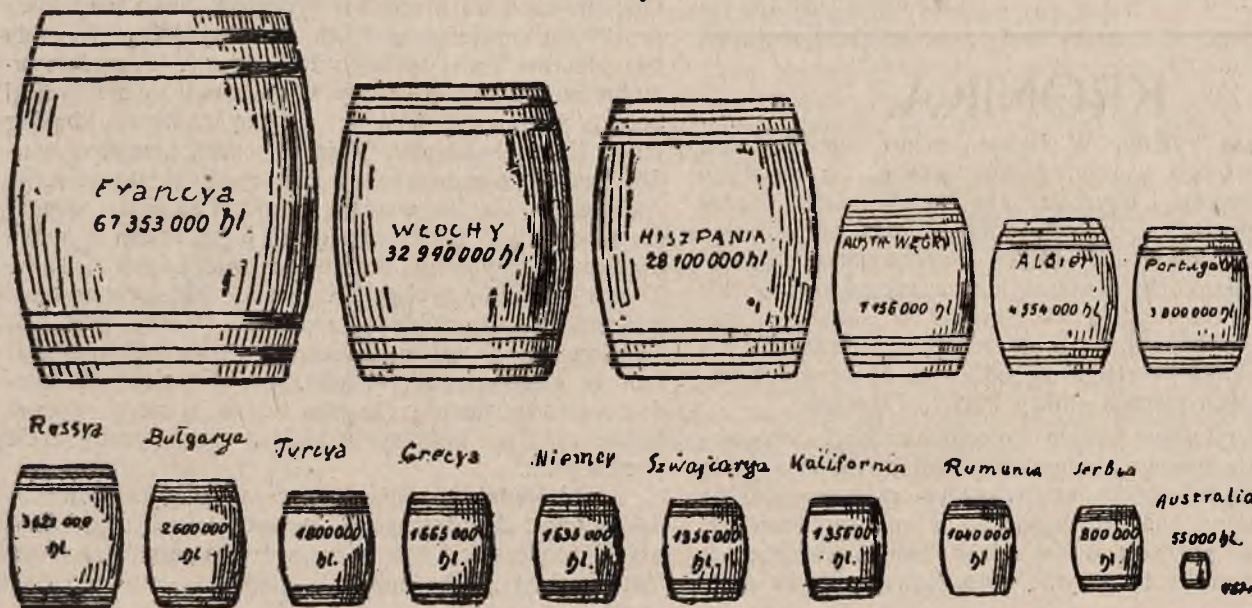 KRONIKA
Francya
67 353 000 hl.
WŁOCHY
32 990 000 hl
HISZPANIA
28 100 000 hl
WĘGRY
7 156 000 hl
ALGIER
4 554 000 hl
Portugalia
3 800 000 hl
Rossya
hl.
Bułgarya
2600 000
hl.
Turcya
1800000
hl.
Grecya
1665 000
hl.
Niemcy
1635 000
hl.
Szwajcarya
1356000
hl.
Kalifornia
hl.
Rumunia
1040 000
hl
Serbia
800 000
hl.
Australia
55 000 hl.